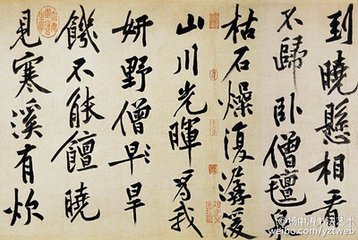 到曉懸相看
不歸卧僧氈
枯石燥復潺湲
山川光暉為我
妍野僧早旱
饑不能饘曉
見寒溪有炊
weibo.com/yztweb